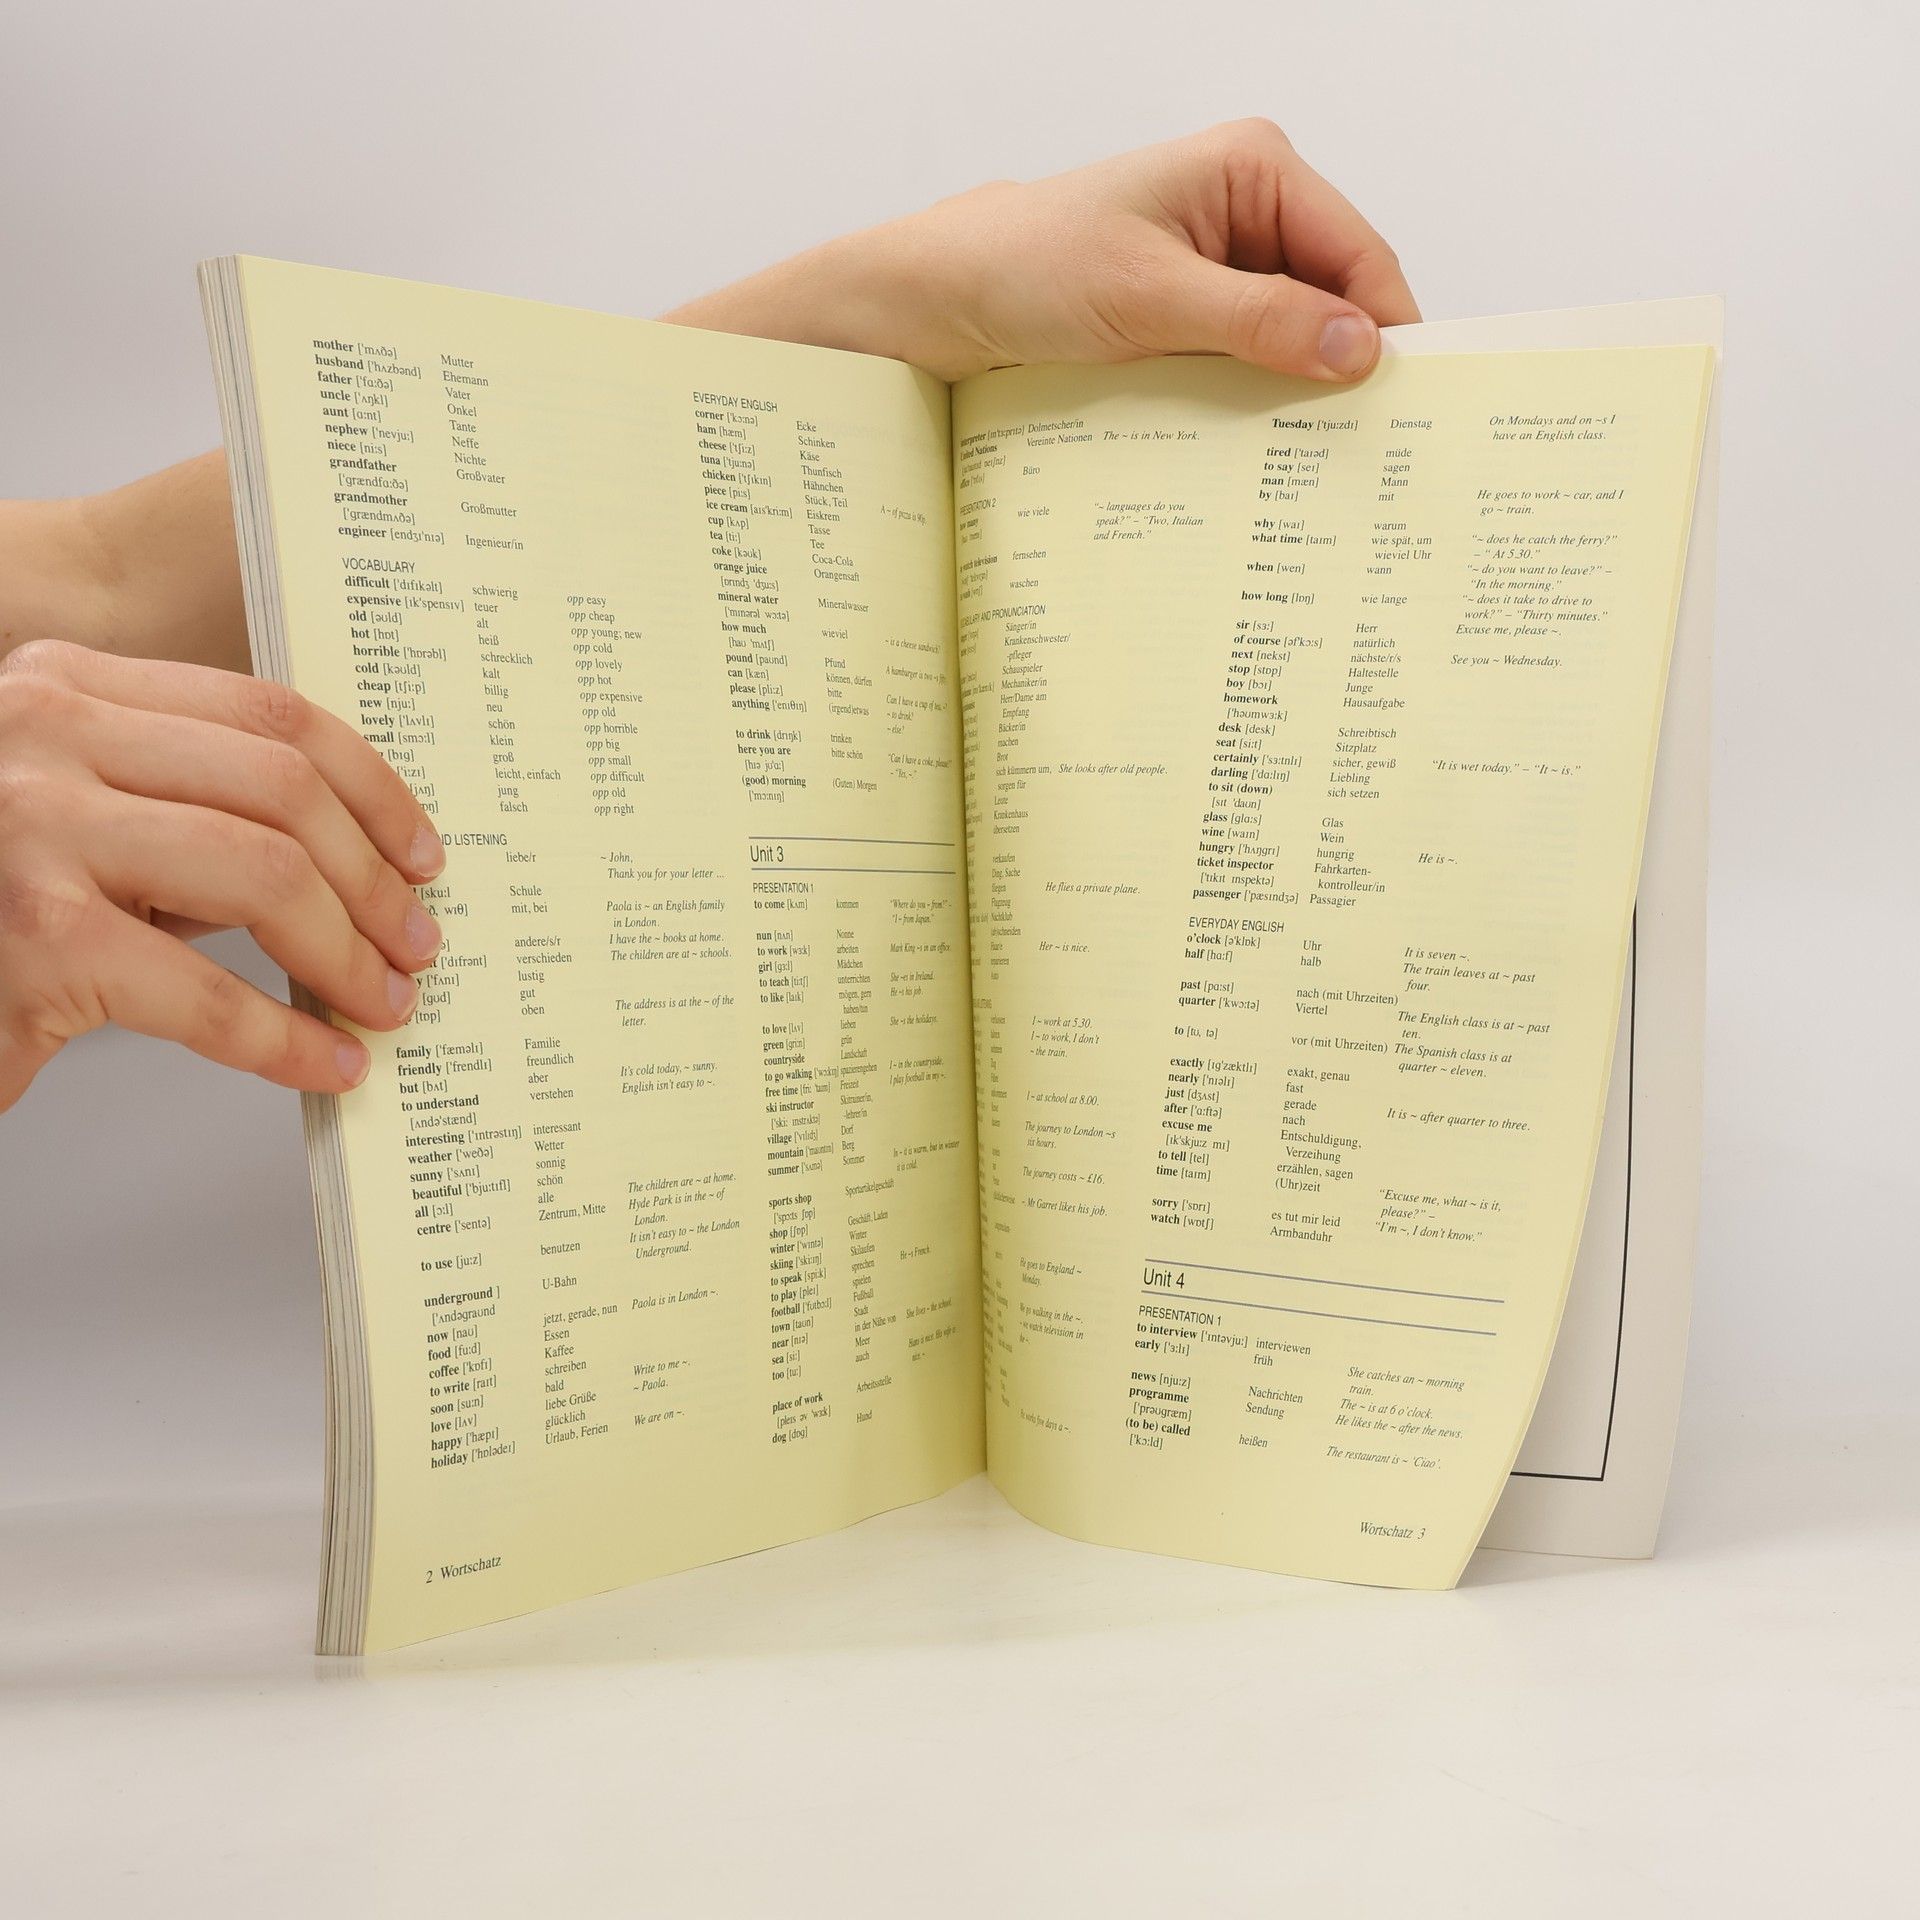 mother ['mʌðə] Mutter
husband ['hʌzbənd] Ehemann
father ['fɑ:ðə] Vater
uncle ['ʌŋkl] Onkel
aunt [ɑ:nt] Tante
nephew ['nevju:] Neffe
niece [ni:s] Nichte
grandfather Großvater
['grændfɑ:ðə]
grandmother Großmutter
['grændmʌðə]
engineer [endʒɪ'nɪə] Ingenieur/in
VOCABULARY
difficult ['dɪfɪkəlt] schwierig opp easy
expensive [ɪk'spensɪv] teuer opp cheap
old [əʊld] alt opp young; new
hot [hɒt] heiß opp cold
horrible ['hɒrəbl] schrecklich opp lovely
cold [kəʊld] kalt opp hot
cheap [tʃi:p] billig opp expensive
new [nju:] neu opp old
lovely ['lʌvlɪ] schön opp horrible
small [smɔ:l] klein opp big
[bɪg] groß opp small
leicht, einfach opp difficult
jung opp old
falsch opp right
LISTENING
liebe/r ~ John,
Thank you for your letter ...
Schule
mit, bei Paola is ~ an English family
in London.
andere/s/r I have the ~ books at home.
['dɪfrənt] verschieden The children are at ~ schools.
['fʌnɪ] lustig
[gʊd] gut
[tɒp] oben The address is at the ~ of the
letter.
family ['fæməlɪ] Familie
friendly ['frendlɪ] freundlich
but [bʌt] aber It's cold today, ~ sunny.
to understand verstehen English isn't easy to ~.
[ʌndə'stænd]
interesting ['ɪntrəstɪŋ] interessant
weather ['weðə] Wetter
sunny ['sʌnɪ] sonnig
beautiful ['bju:tɪfl] schön
all [ɔ:l] alle The children are ~ at home.
centre ['sentə] Zentrum, Mitte Hyde Park is in the ~ of
London.
to use [ju:z] benutzen It isn't easy to ~ the London
Underground.
underground ] U-Bahn
['ʌndəgraʊnd
now [naʊ] jetzt, gerade, nun Paola is in London ~.
food [fu:d] Essen
coffee ['kɒfɪ] Kaffee
to write [raɪt] schreiben Write to me ~.
soon [su:n] bald ~ Paola.
love [lʌv] liebe Grüße
happy ['hæpɪ] glücklich We are on ~.
holiday ['hɒlədeɪ] Urlaub, Ferien
2 Wortschatz
EVERYDAY ENGLISH
corner ['kɔ:nə] Ecke
ham [hæm] Schinken
cheese ['tʃi:z] Käse
tuna ['tju:nə] Thunfisch
chicken ['tʃɪkɪn] Hähnchen
piece [pi:s] Stück, Teil A ~ of pizza is 90p.
ice cream [aɪs'kri:m] Eiskrem
cup [kʌp] Tasse
tea [ti:] Tee
coke [kəʊk] Coca-Cola
orange juice Orangensaft
[ɒrɪndʒ 'dʒu:s]
mineral water Mineralwasser
['mɪnərəl wɔ:tə]
how much wieviel ~ is a cheese sandwich?
[haʊ 'mʌtʃ]
pound [paʊnd] Pfund A hamburger is two ~s fifty.
can [kæn] können, dürfen
please [pli:z] bitte Can I have a cup of tea, ~?
anything ['enɪθɪŋ] (irgend)etwas ~ to drink?
~ else?
to drink [drɪŋk] trinken
here you are bitte schön "Can I have a coke, please?"
[hɪə ju'ɑ:] – "Yes, ~."
(good) morning (Guten) Morgen
['mɔ:nɪŋ]
Unit 3
PRESENTATION 1
to come [kʌm] kommen "Where do you ~ from?" –
"I ~ from Japan."
nun [nʌn] Nonne
to work [wɜ:k] arbeiten Mark King ~s in an office.
girl [gɜ:l] Mädchen
to teach [ti:tʃ] unterrichten She ~es in Ireland.
to like [laɪk] mögen, gern He ~s his job.
haben/tun
to love [lʌv] lieben She ~s the holidays.
green [gri:n] grün
countryside Landschaft
to go walking ['wɔ:kɪŋ] spazierengehen I ~ in the countryside.
free time [fri: 'taɪm] Freizeit I play football in my ~.
ski instructor Skitrainer/in,
['ski: ɪnstrʌktə] -lehrer/in
village ['vɪlɪdʒ] Dorf
mountain ['maʊntɪn] Berg
summer ['sʌmə] Sommer In ~ it is warm, but in winter
it is cold.
sports shop Sportartikelgeschäft
['spɔ:ts ʃɒp]
shop [ʃɒp] Geschäft, Laden
winter ['wɪntə] Winter
skiing ['ski:ɪŋ] Skilaufen
to speak [spi:k] sprechen He ~s French.
to play [pleɪ] spielen
football ['fʊtbɔ:l] Fußball
town [taʊn] Stadt
near [nɪə] in der Nähe von She lives ~ the school.
sea [si:] Meer
too [tu:] auch Hans is nice. His wife is
nice ~.
place of work Arbeitsstelle
[pleɪs əv 'wɜ:k]
dog [dɒg] Hund
interpreter [ɪn'tɜ:prɪtə] Dolmetscher/in
United Nations Vereinte Nationen The ~ is in New York.
Büro
PRESENTATION 2
how many wie viele "~ languages do you
speak?" – "Two, Italian
and French."
watch television fernsehen
waschen
VOCABULARY AND PRONUNCIATION
Sänger/in
Krankenschwester/
-pfleger
Schauspieler
Mechaniker/in
Herr/Dame am
Empfang
Bäcker/in
machen
Brot
sich kümmern um, She looks after old people.
sorgen für
Leute
Krankenhaus
übersetzen
verkaufen
Ding, Sache
fliegen He flies a private plane.
Flugzeug
Nachtklub
(ab)schneiden
Haar/e Her ~ is nice.
reparieren
Auto
I ~ work at 5.30.
I ~ to work, I don't
~ the train.
I ~ at school at 8.00.
The journey to London ~s
six hours.
The journey costs ~ £16.
~ Mr Garret likes his job.
He goes to England ~
Monday.
We go walking in the ~.
~ we watch television in
the ~.
He works five days a ~.
Tuesday ['tju:zdɪ] Dienstag On Mondays and on ~s I
have an English class.
tired ['taɪəd] müde
to say [seɪ] sagen
man [mæn] Mann
by [baɪ] mit He goes to work ~ car, and I
go ~ train.
why [waɪ] warum
what time [taɪm] wie spät, um "~ does he catch the ferry?"
wieviel Uhr – " At 5.30."
when [wen] wann "~ do you want to leave?" –
"In the morning."
how long [lɒŋ] wie lange "~ does it take to drive to
work?" – "Thirty minutes."
sir [sɜ:] Herr Excuse me, please ~.
of course [əf'kɔ:s] natürlich
next [nekst] nächste/r/s See you ~ Wednesday.
stop [stɒp] Haltestelle
boy [bɔɪ] Junge
homework Hausaufgabe
['həʊmwɜ:k]
desk [desk] Schreibtisch
seat [si:t] Sitzplatz
certainly ['sɜ:tnlɪ] sicher, gewiß "It is wet today." – "It ~ is."
darling ['dɑ:lɪŋ] Liebling
to sit (down) sich setzen
[sɪt 'daʊn]
glass [glɑ:s] Glas
wine [waɪn] Wein
hungry ['hʌŋgrɪ] hungrig He is ~.
ticket inspector Fahrkarten-
['tɪkɪt ɪnspektə] kontrolleur/in
passenger ['pæsɪndʒə] Passagier
EVERYDAY ENGLISH
o'clock [ə'klɒk] Uhr It is seven ~.
half [hɑ:f] halb The train leaves at ~ past
four.
past [pɑ:st] nach (mit Uhrzeiten)
quarter ['kwɔ:tə] Viertel The English class is at ~ past
ten.
to [tu, tə] vor (mit Uhrzeiten) The Spanish class is at
quarter ~ eleven.
exactly [ɪg'zæktlɪ] exakt, genau
nearly ['nɪəlɪ] fast
just [dʒʌst] gerade
after ['ɑ:ftə] nach It is ~ after quarter to three.
excuse me Entschuldigung,
[ɪk'skju:z mɪ] Verzeihung
to tell [tel] erzählen, sagen
time [taɪm] (Uhr)zeit "Excuse me, what ~ is it,
please?" –
sorry ['sɒrɪ] es tut mir leid "I'm ~, I don't know."
watch [wɒtʃ] Armbanduhr
Unit 4
PRESENTATION 1
to interview ['ɪntəvju:] interviewen
early ['ɜ:lɪ] früh She catches an ~ morning
train.
news [nju:z] Nachrichten The ~ is at 6 o'clock.
programme Sendung He likes the ~ after the news.
['prəʊgræm]
(to be) called heißen The restaurant is ~ 'Ciao'.
['kɔ:ld]
Wortschatz 3